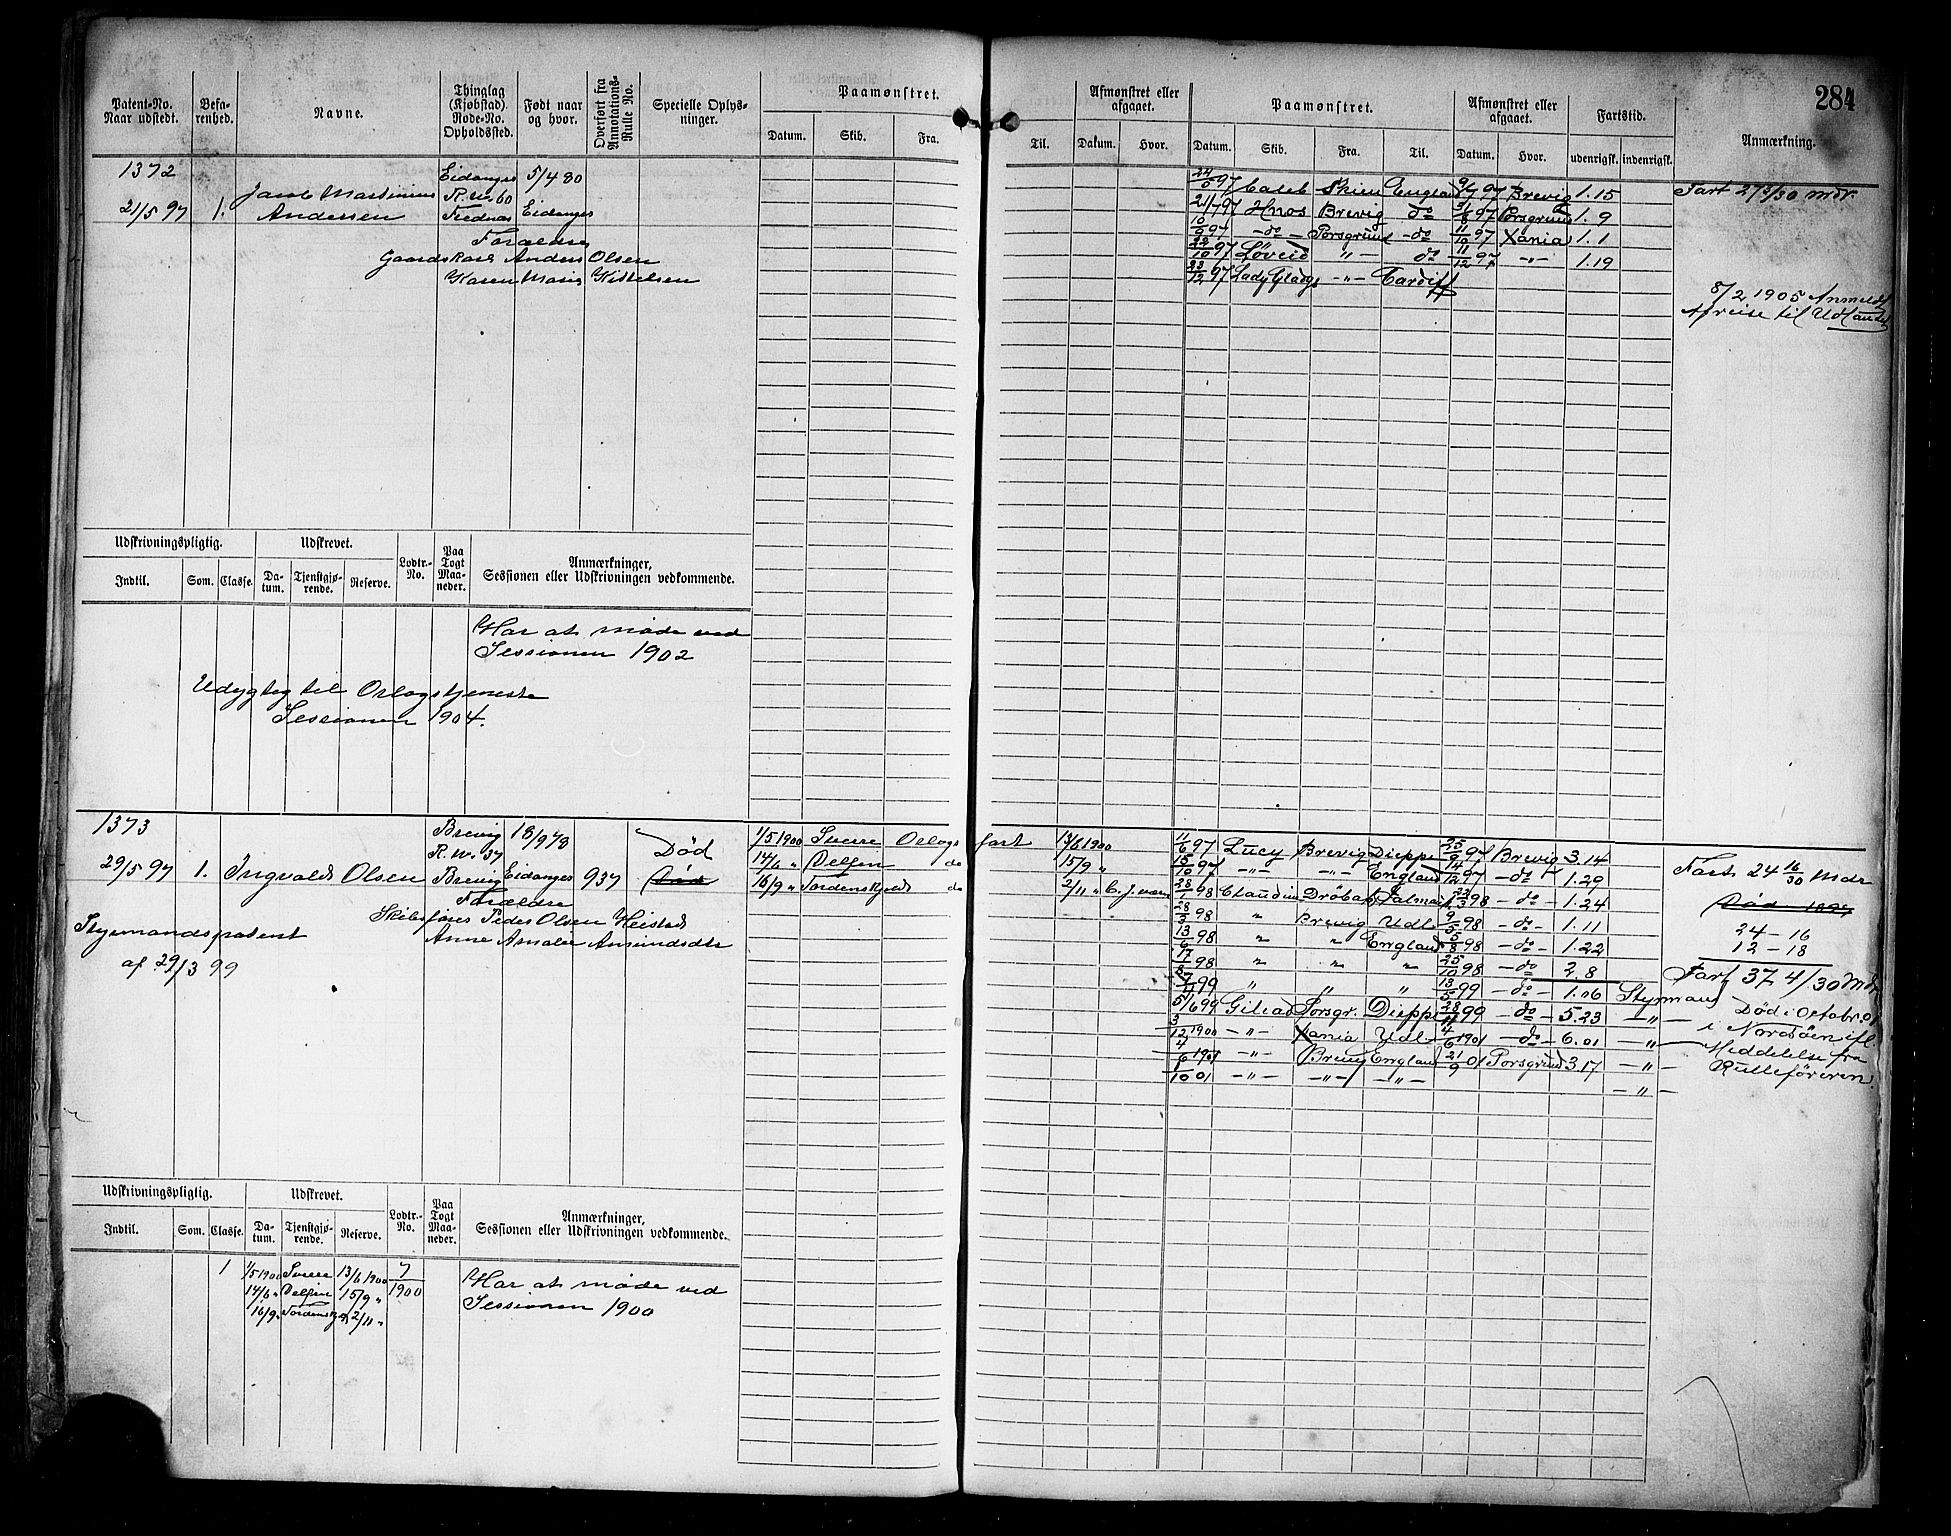 284
Patent-No. Naar udstedt.
Befarenhed.
Navne.
Thinglag (Kjøbstad) Rode-No. Opholdssted.
Født naar og hvor.
Overført fra Annotations-Rulle No.
Specielle Oplysninger.
Paamønstret.
Datum. Skib. Fra. Til.
Afmønstret eller afgaaet.
Datum. Hvor.
Paamønstret.
Datum. Skib. Fra. Til.
Afmønstret eller afgaaet.
Datum. Hvor.
Fartstid.
udenrigsk. indenrigsk.
Anmærkning.
1372
21/5 97 1. Jacob Martinius Andersen
Eidanger R. No. 60
5/4 80 Eidanger
Forældre
Gaardskarl Anders Olsen
Karen Marie Kittelsen
97 Caleb Skien England 97 Brevig 1.15
21/7 97 Hnos Brevig do 97 Porsgrund 1.9
97 -do- Porsgrund -do 11/10 97 Xania 1.1
22/10 97 Løveid -"- do 11/12 97 -"- 1.19
23/12 97 Lady Gladys -"- Cardiff
8/2 1905 Anmeldt
Afreise til Udlandet
Udskrivningspligtig. Udskrevet. Lodtr.-No. Paa Togt Maaneder. Anmærkninger, Sessionen eller Udskrivningen vedkommende.
Indtil. Som. Classe. Datum. Tjenstgjørende. Reserve.
Har at møde ved
Sessionen 1902
Udygtig til Orlogstjeneste
Sessionen 1904.
1373
29/5 97 1. Ingvald Olsen
Brevig R. No. 37 Brevig
18/9 78 Eidanger
937
Død
Død
Forældre
Skibsfører Peder Olsen Heistad
Anne Amalie Amundsdtr
Styrmandspatent
af 29/3 99
1/5 1900 Sverre Orlogsfart 13/6 1900
14/6 " Delfen do 15/9 "
16/9 " Tordenskjold do 2/11 "
11/6 97 Lucy Brevig Dieppe 25/9 97 Brevig 3.14
15/10 97 -"- -"- England 14/12 97 -do- 1.29
28/1 98 Claudine Drøbak 22/3 98 -do- 1.24
28/3 98 " Brevig Udl. 9/5 98 -do- 1.11
13/6 98 " " England 5/8 98 -do- 1.22
17/8 98 " " " 25/10 98 -do 2.8
99 " " " 13/5 99 -do- 1.06 Styrmand
5/6 99 Gilead Porsgr. Dieppe 28/11 99 -do- 5.23 -"-
3/12 1900 -"- Xania Udl. 4/6 1901 -do- 6.01 -"-
4/6 1901 -"- Brevig England 21/9 01 Porsgrund 3.17 -"-
1/10 01 -"- -"- -"- -"-
Fart 24 16/30 Mdr
24-16
12-18
Fart 37 4/30 Mdr
Død i Octobr. 01
i Nordsøen ifl.
Meddelelse fra
Rulleføreren.
Udskrivningspligtig. Udskrevet. Lodtr.-No. Paa Togt Maaneder. Anmærkninger, Sessionen eller Udskrivningen vedkommende.
Indtil. Som. Classe. Datum. Tjenstgjørende. Reserve.
1 1/5 1900 Sverre 13/6 1900 7/1900
14/6 " Delfen 15/9 "
16/9 " Tordenskjold 2/11 "
Har at møde ved
Sessionen 1900